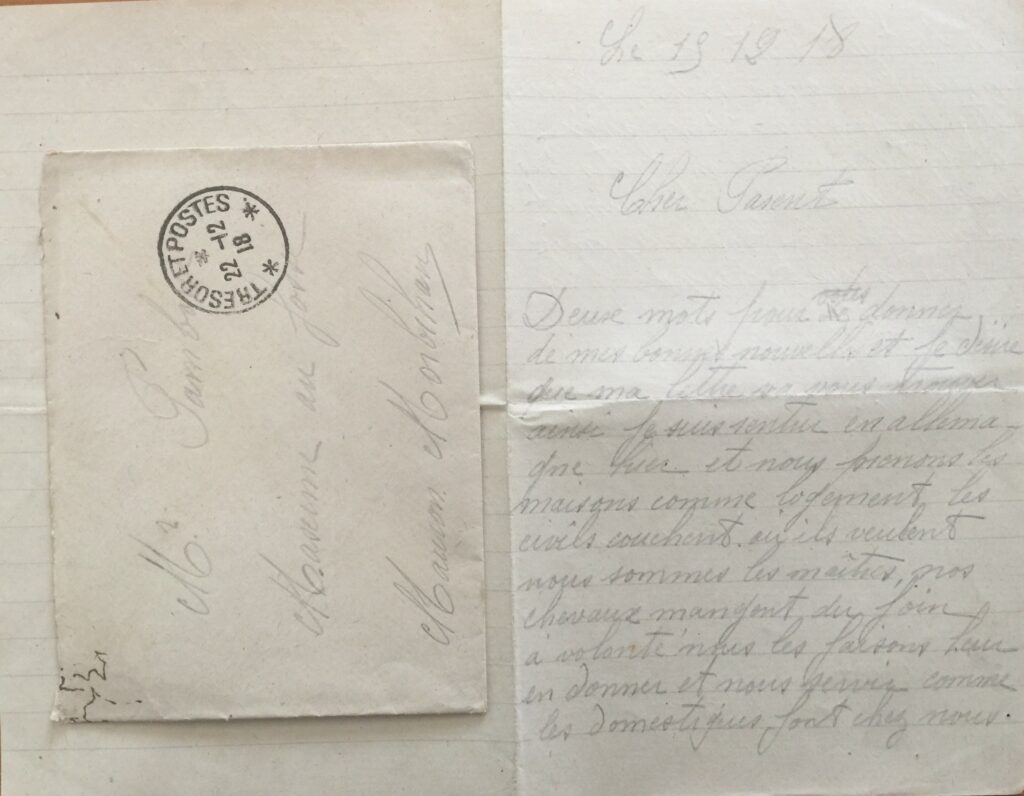 TRESOR ET POSTES
22 -12
18
Mr
au fort
Mauron Morbihan
Le 19 12 18
Cher Parent
Deux mots pour vous donner
de mes bonnes nouvelle et je désire
que ma lettre va vous trouver
ainsi je suis rentrer en allema-
gne hier et nous prenons les
maisons comme logement, les
civils couchent où ils veulent
nous sommes les maîtres, nos
chevaux mangent du foin
a volonté nous les faisons leur
en donner et nous servir comme
les domestiques font chez nous.